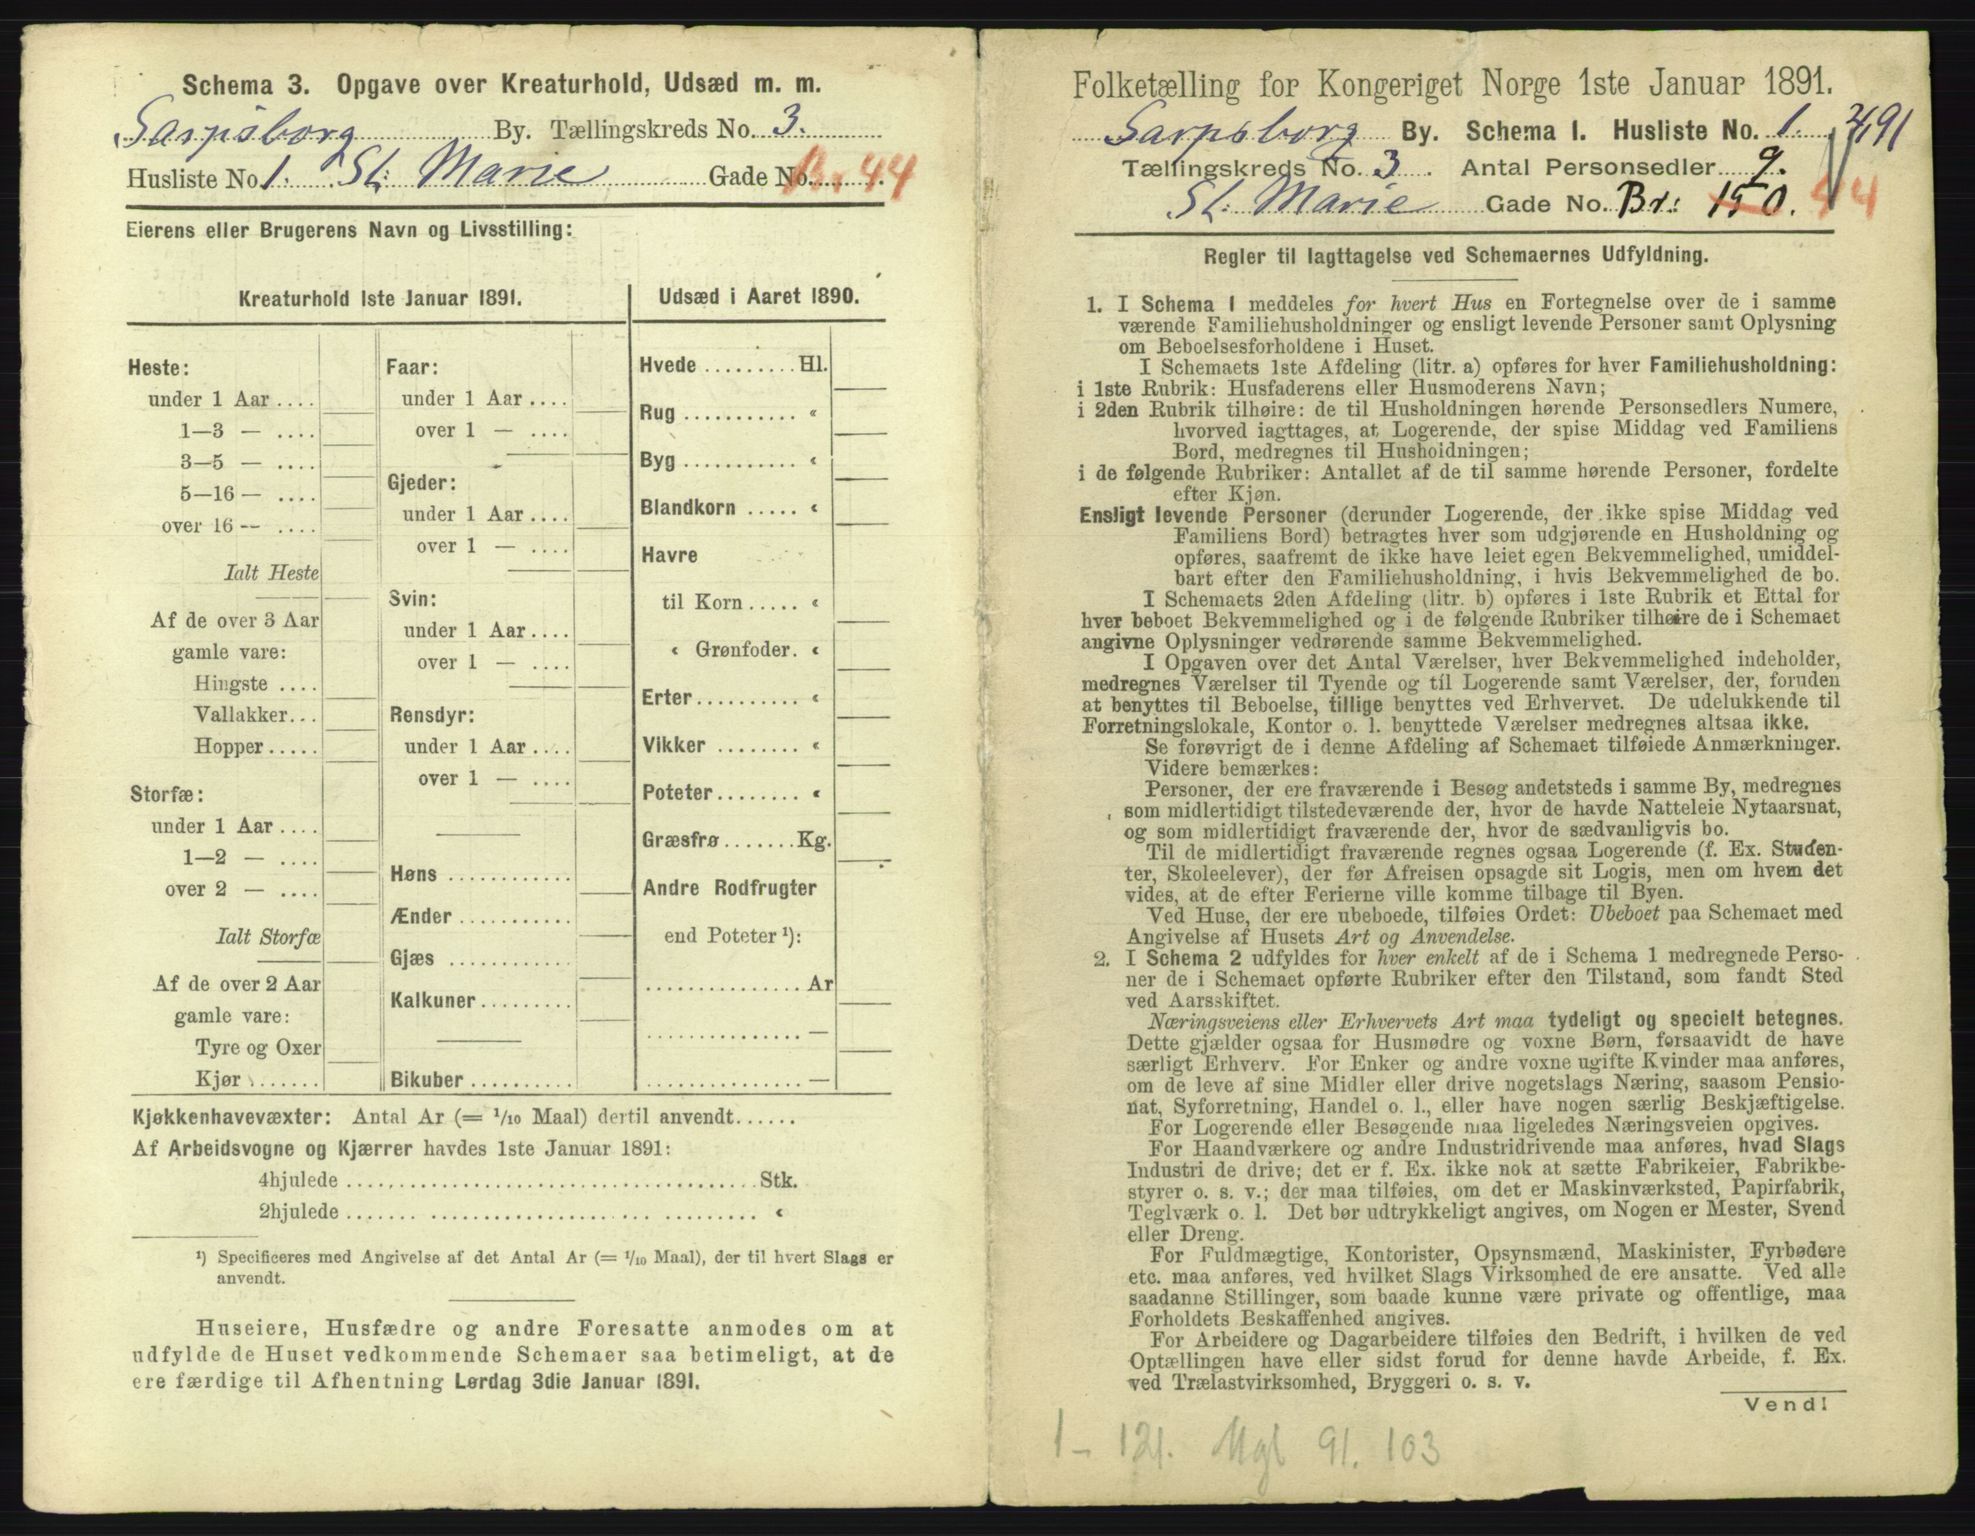 Schema 3. Opgave over Kreaturhold, Udsæd m. m.
Sarpsborg By. Tællingskreds No. 3.
Husliste No. 1. St. Marie Gade No. 44
Eierens eller Brugerens Navn og Livsstilling:
Kreaturhold 1ste Januar 1891.
Heste:
under 1 Aar ....
1—3 — ....
3—5 — ....
5—16 — ....
over 16 — ....
Ialt Heste
Af de over 3 Aar
gamle vare:
Hingste ....
Vallakker...
Hopper.....
Storfæ:
under 1 Aar ....
1—2 — ....
over 2 — ....
Ialt Storfæ
Af de over 2 Aar
gamle vare:
Tyre og Oxer
Kjør ......
Faar:
under 1 Aar ....
over 1 — ....
Gjeder:
under 1 Aar ....
over 1 — ....
Svin:
under 1 Aar ....
over 1 — ....
Rensdyr:
under 1 Aar ....
over 1 — ....
Høns ...........
Ænder ..........
Gjæs ...........
Kalkuner.........
Bikuber ..........
Udsæd i Aaret 1890.
Hvede ......... Hl.
Rug ........... “
Byg ........... “
Blandkorn ..... “
Havre
til Korn ..... “
“ Grønfoder. “
Erter .......... “
Vikker ........ “
Poteter........ “
Græsfrø ....... Kg.
Andre Rodfrugter
end Poteter ¹):
............... Ar
............... —
............... —
Kjøkkenhavevæxter: Antal Ar (= 1/10 Maal) dertil anvendt......
Af Arbeidsvogne og Kjærrer havdes 1ste Januar 1891:
4hjulede ..................................... Stk.
2hjulede ..................................... “
¹) Specificeres med Angivelse af det Antal Ar (= 1/10 Maal), der til hvert Slags er
anvendt.
Huseiere, Husfædre og andre Foresatte anmodes om at
udfylde de Huset vedkommende Schemaer saa betimeligt, at de
ere færdige til Afhentning Lørdag 3die Januar 1891.
Folketælling for Kongeriget Norge 1ste Januar 1891.
Sarpsborg By. Schema I. Husliste No. 1.
Tællingskreds No. 3. Antal Personsedler 9.
St. Marie Gade No. Br: 150. 44
Regler til Iagttagelse ved Schemaernes Udfyldning.
1. I Schema 1 meddeles for hvert Hus en Fortegnelse over de i samme
værende Familiehusholdninger og ensligt levende Personer samt Oplysning
om Beboelsesforholdene i Huset.
I Schemaets 1ste Afdeling (litr. a) opføres for hver Familiehusholdning:
i 1ste Rubrik: Husfaderens eller Husmoderens Navn;
i 2den Rubrik tilhøire: de til Husholdningen hørende Personsedlers Numere,
hvorved iagttages, at Logerende, der spise Middag ved Familiens
Bord, medregnes til Husholdningen;
i de følgende Rubriker: Antallet af de til samme hørende Personer, fordelte
efter Kjøn.
Ensligt levende Personer (derunder Logerende, der ikke spise Middag ved
Familiens Bord) betragtes hver som udgjørende en Husholdning og
opføres, saafremt de ikke have leiet egen Bekvemmelighed, umiddel-
bart efter den Familiehusholdning, i hvis Bekvemmelighed de bo.
I Schemaets 2den Afdeling (litr. b) opføres i 1ste Rubrik et Ettal for
hver beboet Bekvemmelighed og i de følgende Rubriker tilhøire de i Schemaet
angivne Oplysninger vedrørende samme Bekvemmelighed.
I Opgaven over det Antal Værelser, hver Bekvemmelighed indeholder,
medregnes Værelser til Tyende og til Logerende samt Værelser, der, foruden
at benyttes til Beboelse, tillige benyttes ved Erhvervet. De udelukkende til
Forretningslokale, Kontor o. l. benyttede Værelser medregnes altsaa ikke.
Se forøvrigt de i denne Afdeling af Schemaet tilføiede Anmærkninger.
Videre bemærkes:
Personer, der ere fraværende i Besøg andetsteds i samme By, medregnes
som midlertidigt tilstedeværende der, hvor de havde Natteleie Nytaarsnat,
og som midlertidigt fraværende der, hvor de sædvanligvis bo.
Til de midlertidigt fraværende regnes ogsaa Logerende (f. Ex. Studen-
ter, Skoleelever), der før Afreisen opsagde sit Logis, men om hvem det
vides, at de efter Ferierne ville komme tilbage til Byen.
Ved Huse, der ere ubeboede, tilføies Ordet: Ubeboet paa Schemaet med
Angivelse af Husets Art og Anvendelse.
2. I Schema 2 udfyldes for hver enkelt af de i Schema 1 medregnede Perso-
ner de i Schemaet opførte Rubriker efter den Tilstand, som fandt Sted
ved Aarsskiftet.
Næringsveiens eller Erhvervets Art maa tydeligt og specielt betegnes.
Dette gjælder ogsaa for Husmødre og voxne Børn, forsaavidt de have
særligt Erhverv. For Enker og andre voxne ugifte Kvinder maa anføres,
om de leve af sine Midler eller drive nogetslags Næring, saasom Pensio-
nat, Syforretning, Handel o. l., eller have nogen særlig Beskjæftigelse.
For Logerende eller Besøgende maa ligeledes Næringsveien opgives.
For Haandværkere og andre Industridrivende maa anføres, hvad Slags
Industri de drive; det er f. Ex. ikke nok at sætte Fabrikeier, Fabrikbe-
styrer o. s. v.; der maa tilføies, om det er Maskinværksted, Papirfabrik,
Teglværk o. l. Det bør udtrykkeligt angives, om Nogen er Mester, Svend
eller Dreng.
For Fuldmægtige, Kontorister, Opsynsmænd, Maskinister, Fyrbødere
etc. maa anføres, ved hvilket Slags Virksomhed de ere ansatte. Ved alle
saadanne Stillinger, som baade kunne være private og offentlige, maa
Forholdets Beskaffenhed angives.
For Arbeidere og Dagarbeidere tilføies den Bedrift, i hvilken de ved
Optællingen have eller sidst forud for denne havde Arbeide, f. Ex.
ved Trælastvirksomhed, Bryggeri o. s. v.
Vend!
1 - 121. Mgl 91. 103